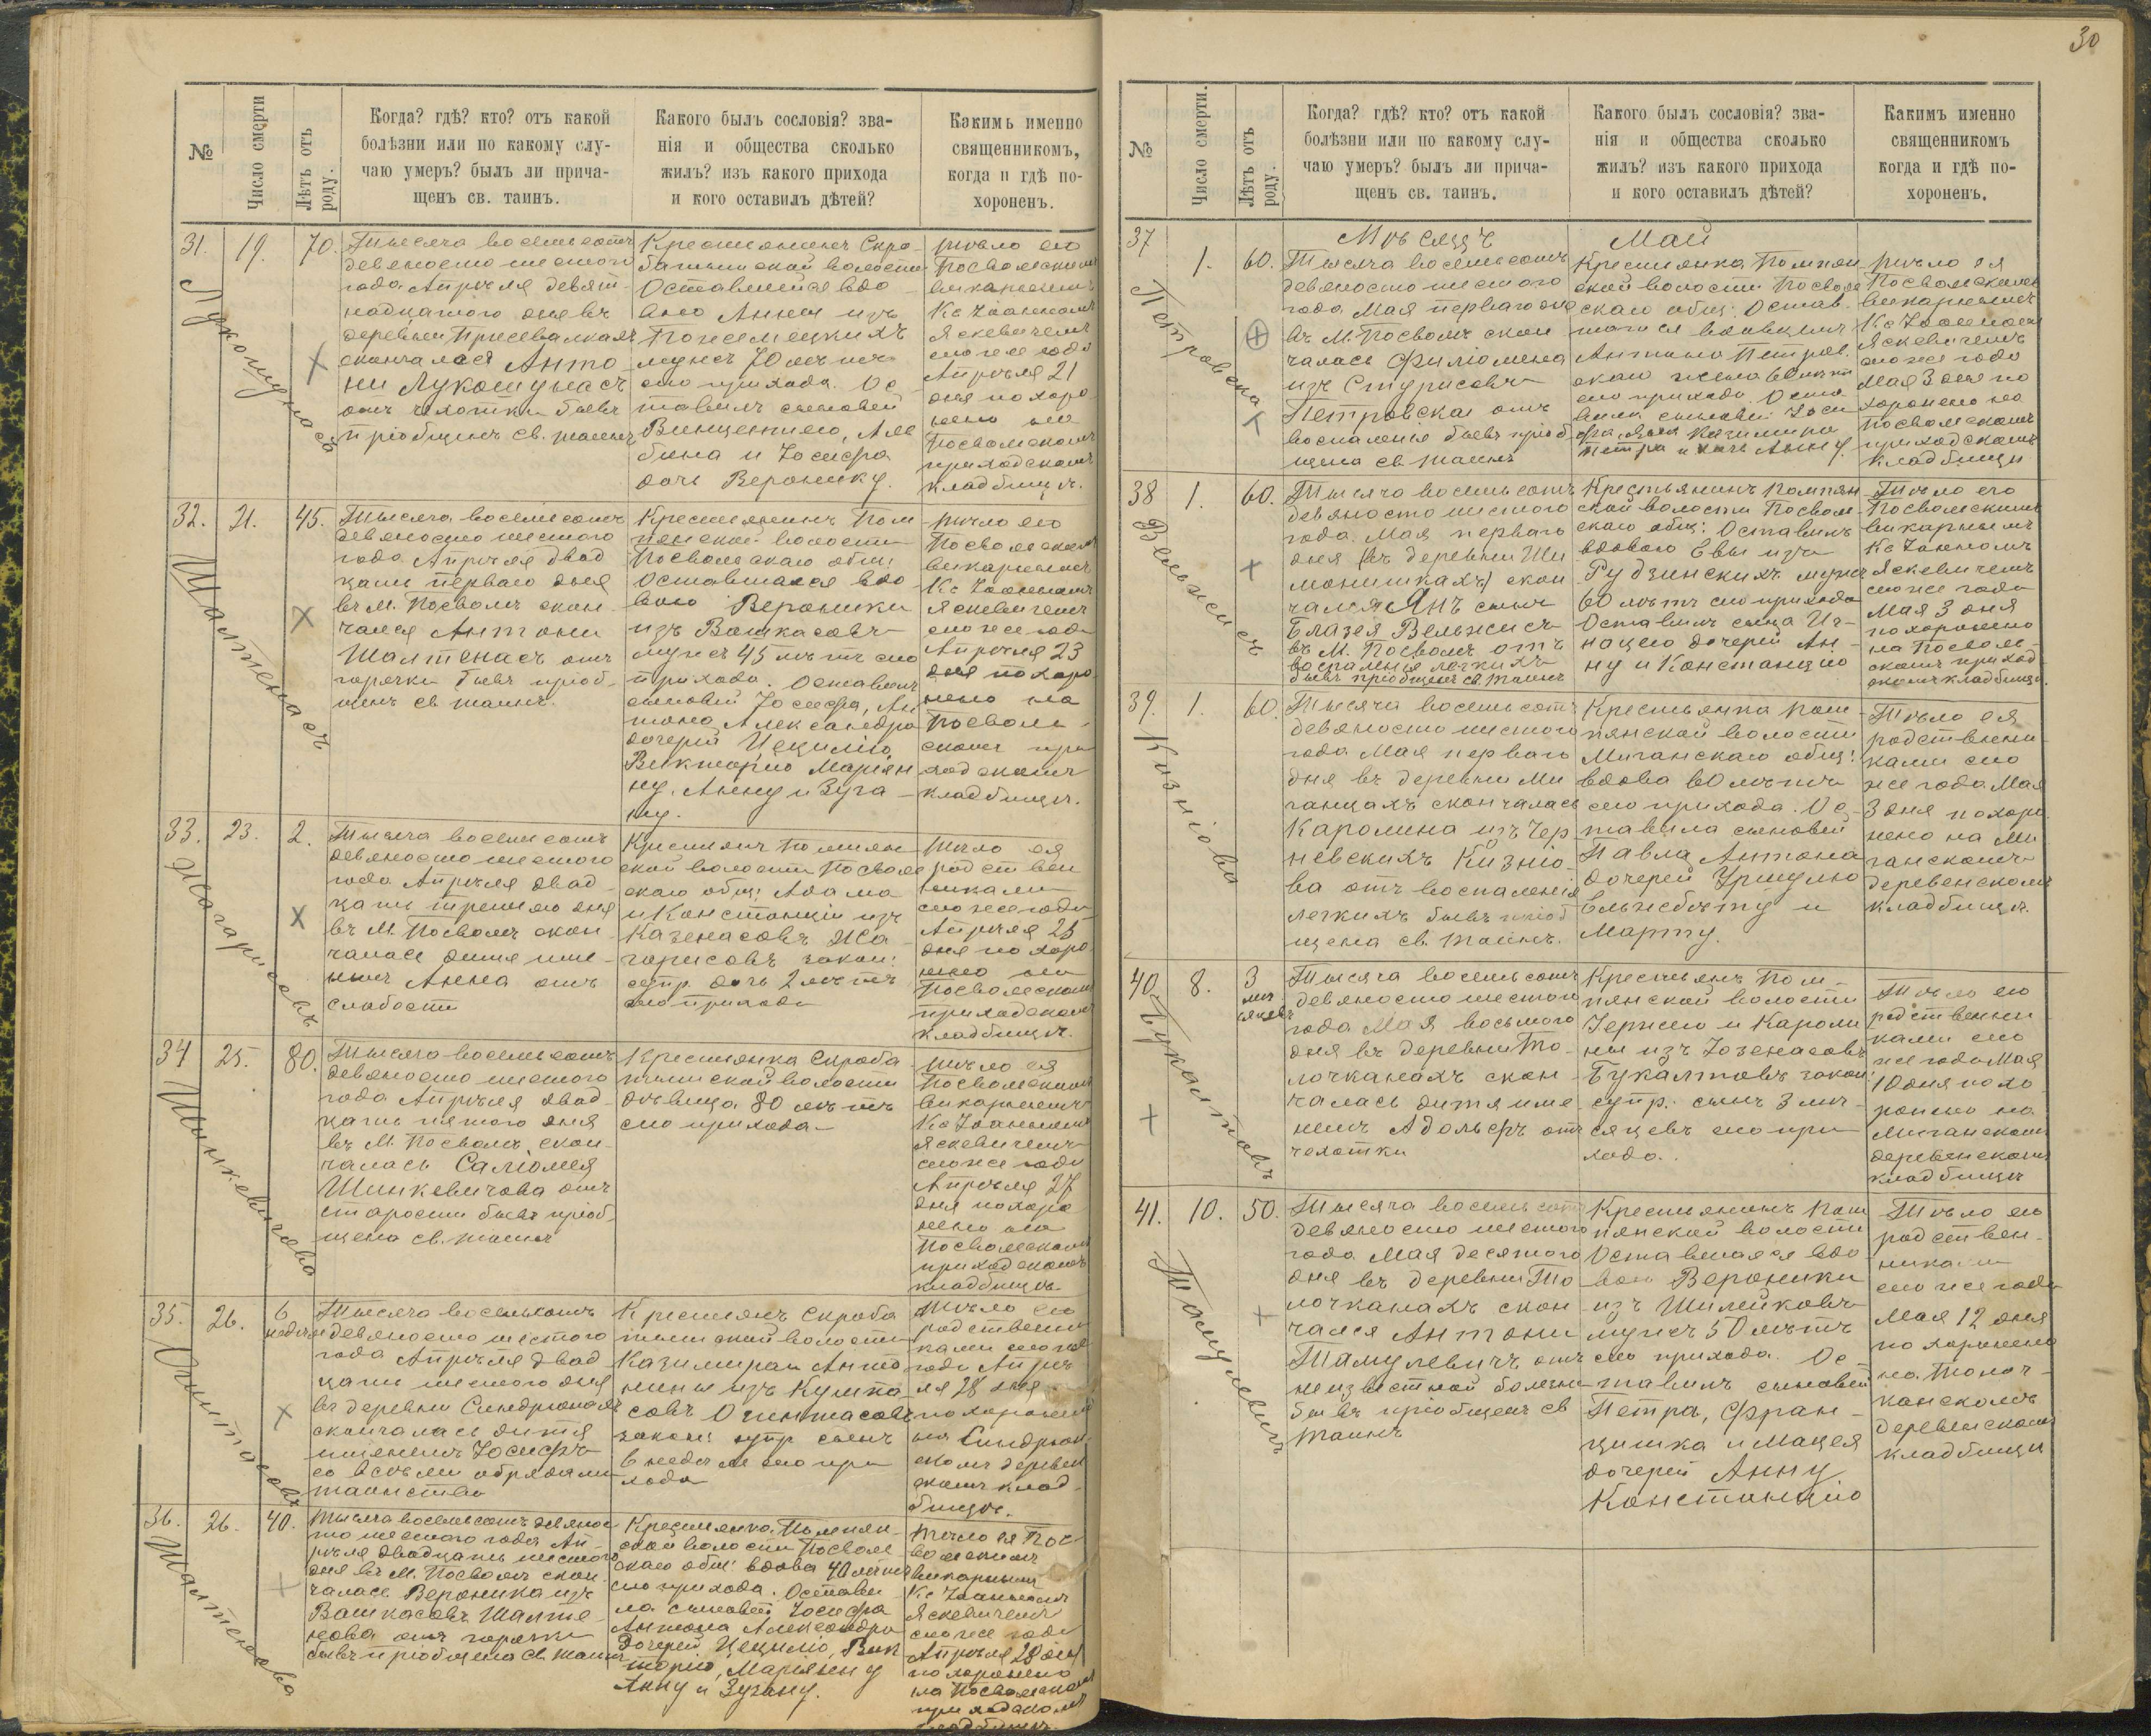 30
№
Число смерти
Лѣтъ отъ
роду.
Когда? гдѣ? кто? отъ какой
болѣзни или по какому слу-
чаю умеръ? былъ ли прича-
щенъ св. таинъ.
Какого былъ сословія? зва-
нія и общества сколько
жилъ? изъ какого прихода
и кого оставилъ дѣтей?
Какимъ именно
священникомъ,
когда и гдѣ по-
хороненъ.
31.
19.
70.
Лукошунасъ
Тысяча восемьсотъ
девяносто шестого
года Апрѣля девят-
надцатого дня въ
деревни
скончался Анто
ни Лукошунасъ
отъ чахотки бывъ
пріобщенъ св. таинъ
Крестьянинъ Скро-
батышской волости
Оставшейся вдо
вою Анны изъ
мужъ 70 лѣтъ
сего прихода. Ос
тавилъ сыновей
Винцентіего, Аль
бина и Іосифа
дочь Веронику.
тѣло его
Посвольскимъ
викарнымъ
Кс Іоанномъ
Яскевичемъ
сего же года
Апрѣля 21
дня похоро
нено на
Посвольскомъ
приходскомъ
кладбищѣ.
32.
21.
45.
Шалтенасъ
Тысяча восемьсотъ
девяносто шестого
года Апрѣля двад
цать перваго дня
въ М. Посволь скон-
чался Антони
Шалтенасъ отъ
горячки бывъ пріоб-
щенъ св. таинъ.
Крестьянинъ Пом
пянской волости
Посвольскаго общ:
Оставшаяся вдо
вою Вероники
изъ Вашкасовъ
мужъ 45 лѣтъ сего
прихода. Оставилъ
сыновей Іосифа, Ан
тона, Александра
дочерей Цецилію
Викторію Маріян
ну, Анну и Зуза-
ну.
тѣло его
Посвольскимъ
викарнымъ
Кс Іоанномъ
Яскевичемъ
сего же года
Апрѣля 23
дня похоро
нено на
Посволь-
скомъ при
ходскомъ
кладбищѣ.
33.
23.
2.
Жагарисовъ
Тысяча восемьсотъ
девяносто шестого
года Апрѣля двад
цать третьяго дня
въ М. Посволь скон-
чалась дитя име-
немъ Анна отъ
слабости
Крестьянъ Помпян
ской волости Посволь
скаго общ: Адама
и Констанціи изъ
Казенасовъ Жа-
гарисовъ закон:
супр. дочь 2 лѣтъ
сего прихода
Тѣло ея
родствен
никами
сего же года
Апрѣля 25
дня похоро
нено на
Посвольскомъ
приходскомъ
кладбищѣ.
34
25.
80.
Шинкевичева
Тысяча восемьсотъ
девяносто шестого
года Апрѣля двад-
цать пятого дня
въ М. Посволь скон-
чалась Саліомея
Шинкевичова отъ
старости бывъ пріоб-
щена св. таинъ
Крестьянка Скроба
тышской волости
дѣвица 80 лѣтъ
сего прихода
тѣло ея
Посвольскимъ
викарнымъ
Кс Іоанномъ
Яскевичемъ
сего же года
Апрѣля 27
дня похоро
нено на
Посвольскомъ
приходскомъ
кладбищѣ.
35.
26.
6
недѣль
Огинтасовъ
Тысяча восемьсотъ
девяносто шестого
года Апрѣля двад
цать шестого дня
въ деревни
скончалась дитя
именемъ Іосифъ
со всѣми обрядами
таинства
Крестьянъ Скроба
тышской волости
Казимира и Анто
нины изъ Кушка
совъ Огинтасовъ
закон: супр сынъ
6 недѣль сего при
хода
Тѣло его
родственни
ками сего же
года Апрѣ
ля 28 дня
похоронено
на
скомъ деревен
скомъ клад-
бищѣ.
36.
26.
40.
Шалтенова
Тысяча восемьсотъ девянос
то шестого года Ап-
рѣля двадцать шестого
дня въ М. Посволь скон
чалась Вероника изъ
Вашкасовъ Шалте-
нова отъ горячки
бывъ пріобщена св. таинъ
Крестьянка Помпян-
ской волости Посволь
скаго общ: вдова 40 лѣтъ
сего прихода. Остави
ла сыновей Іосифа
Антона Александра
Дочерей Цецилію, Вик
торію, Маріянну
Анну и Зузану.
тѣло ея Пос
вольскимъ
викарнымъ
Кс Іоанномъ
Яскевичемъ
сего же года
Апрѣля 28 дня
похоронено
на Посвольскомъ
приходскомъ
кладбищѣ.
№
Число смерти.
Лѣтъ отъ
роду.
Когда? гдѣ? кто? отъ какой
болѣзни или по какому слу-
чаю умеръ? былъ ли прича-
щенъ св. таинъ.
Какого былъ сословія? зва-
нія и общества сколько
жилъ? изъ какого прихода
и кого оставилъ дѣтей?
Какимъ именно
священникомъ
когда и гдѣ по-
хороненъ.
Мѣсяцъ Май
37
1.
60.
Петровска
Тысяча восемьсотъ
девяносто шестого
года Мая перваго дня
въ М. Посволь скон
чалась Филіомена
изъ Стурисовъ
Петровская отъ
воспаленія бывъ пріоб
щена св таинъ
Крестьянка Помпян
ской волости Посволь
скаго общ: Остав.
шагося вдовцемъ
Антона Петров.
скаго жена 60 лѣтъ
сего прихода. Оста
вила сыновей Іоси
фа, Казимира
Петра и дочь Анну.
тѣло ея
Посвольскимъ
викарнымъ
Кс Іоанномъ
Яскевичемъ
сего же года
Мая 3 дня по
хоронено на
Посвольскомъ
приходскомъ
кладбищѣ
38
1.
60.
Вельжисъ
Тысяча восемьсотъ
девяносто шестого
года Мая перваго
дня (въ деревни Ши
монишкахъ) скон
чался Янъ сынъ
Блазея Вельжисъ
въ М. Посволь отъ
воспаленія легкихъ
бывъ пріобщенъ св. таинъ
Крестьянинъ Помпян
ской волости Посволь
скаго общ: Оставилъ
вдовою Евы изъ
Рудзинскихъ мужъ
60 лѣтъ сего прихода
Оставилъ сына Иг-
нацего дочерей Ан-
ну и Констанцію
Тѣло его
Посвольскимъ
викарнымъ
Кс Іоанномъ
Яскевичемъ
сего же года
Мая 3 дня
похоронено
на Посволь-
скомъ приход
скомъ кладбищѣ.
39.
1.
60.
Кизніова
Тысяча восемьсотъ
девяносто шестого
года Мая перваго
дня въ деревни Ми
ганцахъ скончалась
Каролина изъ Чер
невскихъ Кизніо
ва отъ воспаленія
легкихъ бывъ пріоб
щена св. таинъ.
Крестьянка Пом
пянской волости
Миганскаго общ:
вдова 60 лѣтъ
сего прихода. Ос-
тавила сыновей
Павла, Антона
дочерей Уршулю
Ельжбѣту и
Марту.
Тѣло ея
родственни
ками сего
же года Мая
3 дня похоро
нено на Ми
ганскомъ
деревенскомъ
кладбищѣ.
40.
8.
3
мѣ
сяцевъ
Букалтовъ
Тысяча восемьсотъ
девяносто шестого
года Мая восьмого
дня въ деревни То-
лочканахъ скон-
чалась дитя име
немъ Адольфъ отъ
чахотки
Крестьянъ Пом-
пянской волости
Іержего и Кароли
ны изъ Іозенасовъ
Букалтовъ закон:
супр. сынъ 3 мѣ-
сяцевъ сего при
хода.
Тѣло его
родственни
ками сего
же года Мая
10 дня похо
ронено на
Миганскомъ
деревенскомъ
кладбищѣ
41.
10.
50.
Тамулевичъ
Тысяча восемьсотъ
девяносто шестого
года Мая десятого
дня въ деревни То
лочканахъ скон
чался Антони
Тамулевичъ отъ
неизвестной болезни
бывъ пріобщенъ св
таинъ
Крестьянинъ Пом
пянской волости
Оставшаяся вдо
вою Вероники
изъ Шилейковъ
мужъ 50 лѣтъ
сего прихода. Ос-
тавилъ сыновей
Петра, Фран-
цишка и Мацея
дочерей Анну
Констанцію
Тѣло его
родствен-
никами
сего же года
Мая 12 дня
похоронено
на Толоч-
канскомъ
деревенскомъ
кладбищѣ